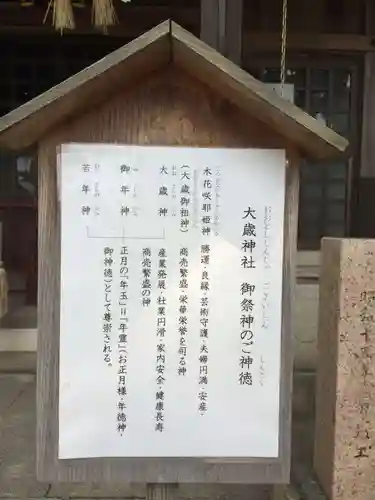 大歳神社 御祭神のご神徳
木花咲耶姫神 勝運・良縁・芸術守護・夫婦円満・安産・
(大歳御祖神) 商売繁盛・栄華栄誉を司る神
大歳神 産業発展・社業円滑・家内安全・健康長寿
商売繁盛の神
御年神 正月の「年玉」=「年霊」(お正月様・年徳神・
若年神 御神徳)として尊崇される。